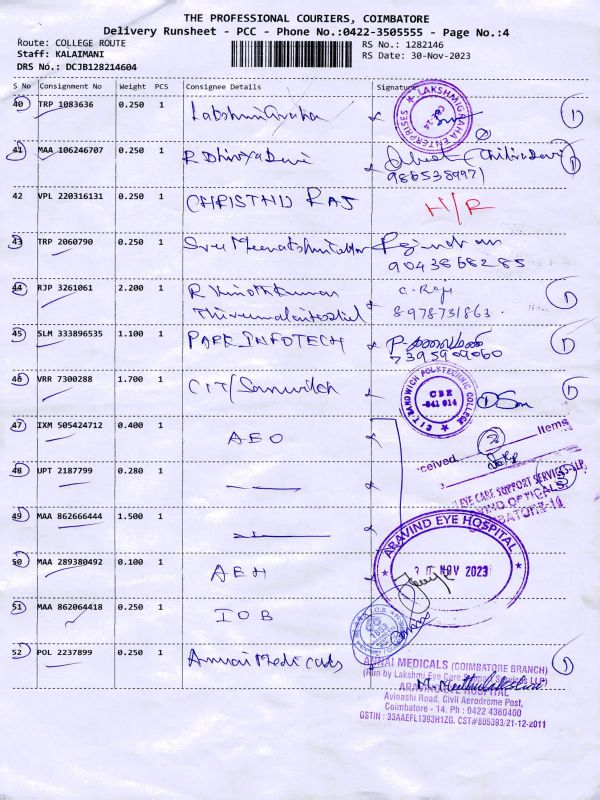 THE PROFESSIONAL COURIERS, COIMBATORE
Delivery Runsheet - PCC - Phone No.:0422-3505555 - Page No.:4
Route: COLLEGE ROUTE
RS No.: 1282146
Staff: KALAIMANI
RS Date: 30-Nov-2023
DRS No.: DCJB128214604
S No Consignment No Weight PCS Consignee Details Signature
40 TRP 1083636 0.250 1
LAKSHMIGRAHA ENTERPRISES
41 MAA 106246707 0.250 1 R Dhivya Devi
9865389971
42 VPL 220316131 0.250 1 CHRISTHU RAJ H/R
43 TRP 2060790 0.250 1 Sree
9043868285
44 RJP 3261061 2.200 1 R Vinoth Kumar C. Raja
8978731863
45 SLM 333896535 1.100 1 PARK INFOTECH
7395909060
46 VRR 7300288 1.700 1 CIT/Sanwitch
C.I.T SANDWICH POLYTECHNIC COLLEGE
CBE
-641 014
47 IXM 505424712 0.400 1 AEO
Items
48 UPT 2187799 0.280 1
EYE CARE SUPPORT SERVICES LLP
49 MAA 862666444 1.500 1
ARAVIND EYE HOSPITAL
50 MAA 289380492 0.100 1 AEH
30 NOV 2023
51 MAA 862064418 0.250 1 IOB
52 POL 2237899 0.250 1 Annai Medicals
ANNAI MEDICALS (COIMBATORE BRANCH)
(Run by Lakshmi Eye Care Support Services LLP)
ARAVIND EYE HOSPITAL
Avinashi Road, Civil Aerodrome Post,
Coimbatore - 14. Ph : 0422 4360400
GSTIN : 33AAEFL1393H1ZG. CST#805393/21-12-2011